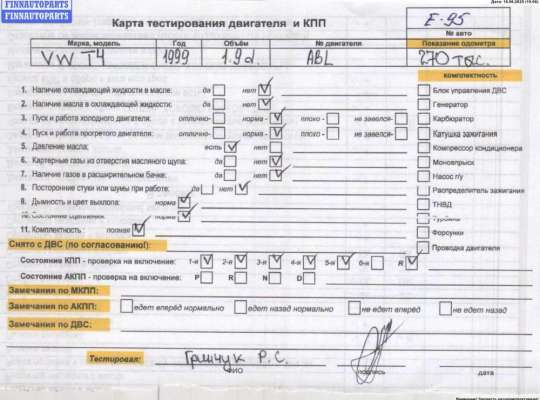 FINNAUTOPARTS
FINNAUTOPARTS
Карта тестирования двигателя и КПП
E-95
№ авто
Марка, модель Год Объём № двигателя Показание одометра
VW T4 1999 1.9 d. ABL 270 тыс.
комплектность
1. Наличие охлаждающей жидкости в масле: да нет Блок управления ДВС
2. Наличие масла в охлаждающей жидкости: да нет Генератор
3. Пуск и работа холодного двигателя: отлично- норма - плохо - не завелся- Карбюратор
4. Пуск и работа прогретого двигателя: отлично- норма - плохо - не завелся- Катушка зажигания
5. Давление масла: есть нет Компрессор кондиционера
6. Картерные газы из отверстия масляного щупа: да нет Моновпрыск
7. Наличие газов в расширительном бачке: да нет Насос г/у
8. Посторонние стуки или шумы при работе: да нет Распределитель зажигания
9. Дымность и цвет выхлопа: норма ТНВД
10. Состояние сцепления: норма Турбина
11. Комплектность: полная Форсунки
Снято с ДВС (по согласованию!): Проводка двигателя
Состояние КПП - проверка на включение: 1-я 2-я 3-я 4-я 5-я 6-я R
Состояние АКПП - проверка на включение: P R N D
Замечания по МКПП:
Замечания по АКПП: едет вперёд нормально едет назад нормально не едет вперёд не едет назад
Замечания по ДВС:
Тестировал: Гринчук Р. С.
ФИО подпись дата